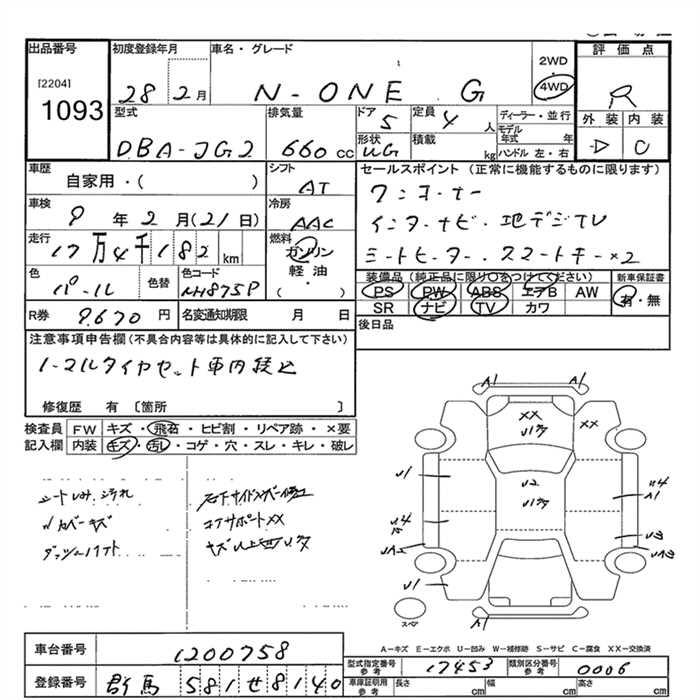 出品番号 初度登録年月 車名・グレード 評価点
[2204] 1093
28 2月 N-ONE G 2WD 4WD R
型式 排気量 ドア 定員 ディーラー・並行 外装 内装
DBA-JG2 660cc 5 4人 モデル年式 年 D C
形状 UG 積載 kg ハンドル 左・右
車歴 シフト セールスポイント (正常に機能するものに限ります)
自家用・( ) AT ワンオーナー
車検 冷房
9年2月(21日) AAC インターナビ・地デジTV
走行 燃料
17万4千182km ガソリン シートヒーター・スマートキー×2
軽油 ( )
色 色替 色コード 装備品(純正品に限り○をつけてください) 新車保証書
パール NH875P PS PW ABS エアB AW 有・無
SR ナビ TV カワ
R券 9.670円 名変通知期限 月 日 後日品
注意事項申告欄(不具合内容等は具体的に記入して下さい)
ノーマルタイヤセット車内積込
修復歴 有 〔箇所 〕
検査員 FW キズ・飛石・ヒビ割・リペア跡・×要
記入欄 内装 キズ・汚れ・コゲ・穴・スレ・キレ・破レ
シートしみ、汚れ
内カバーキズ
コアサポートXX
A1 A1
XX XX
U1 U2 U4 A1
U4
U1 A1
スペア
A-キズ E-エクボ U-凹み W-補修跡 S-サビ C-腐食 XX-交換済
車台番号 1200758
型式指定番号 参考 17453 類別区分番号 参考 0006
登録番号 群馬 581せ8140
車庫証明用 参考 長さ cm 幅 cm 高さ cm